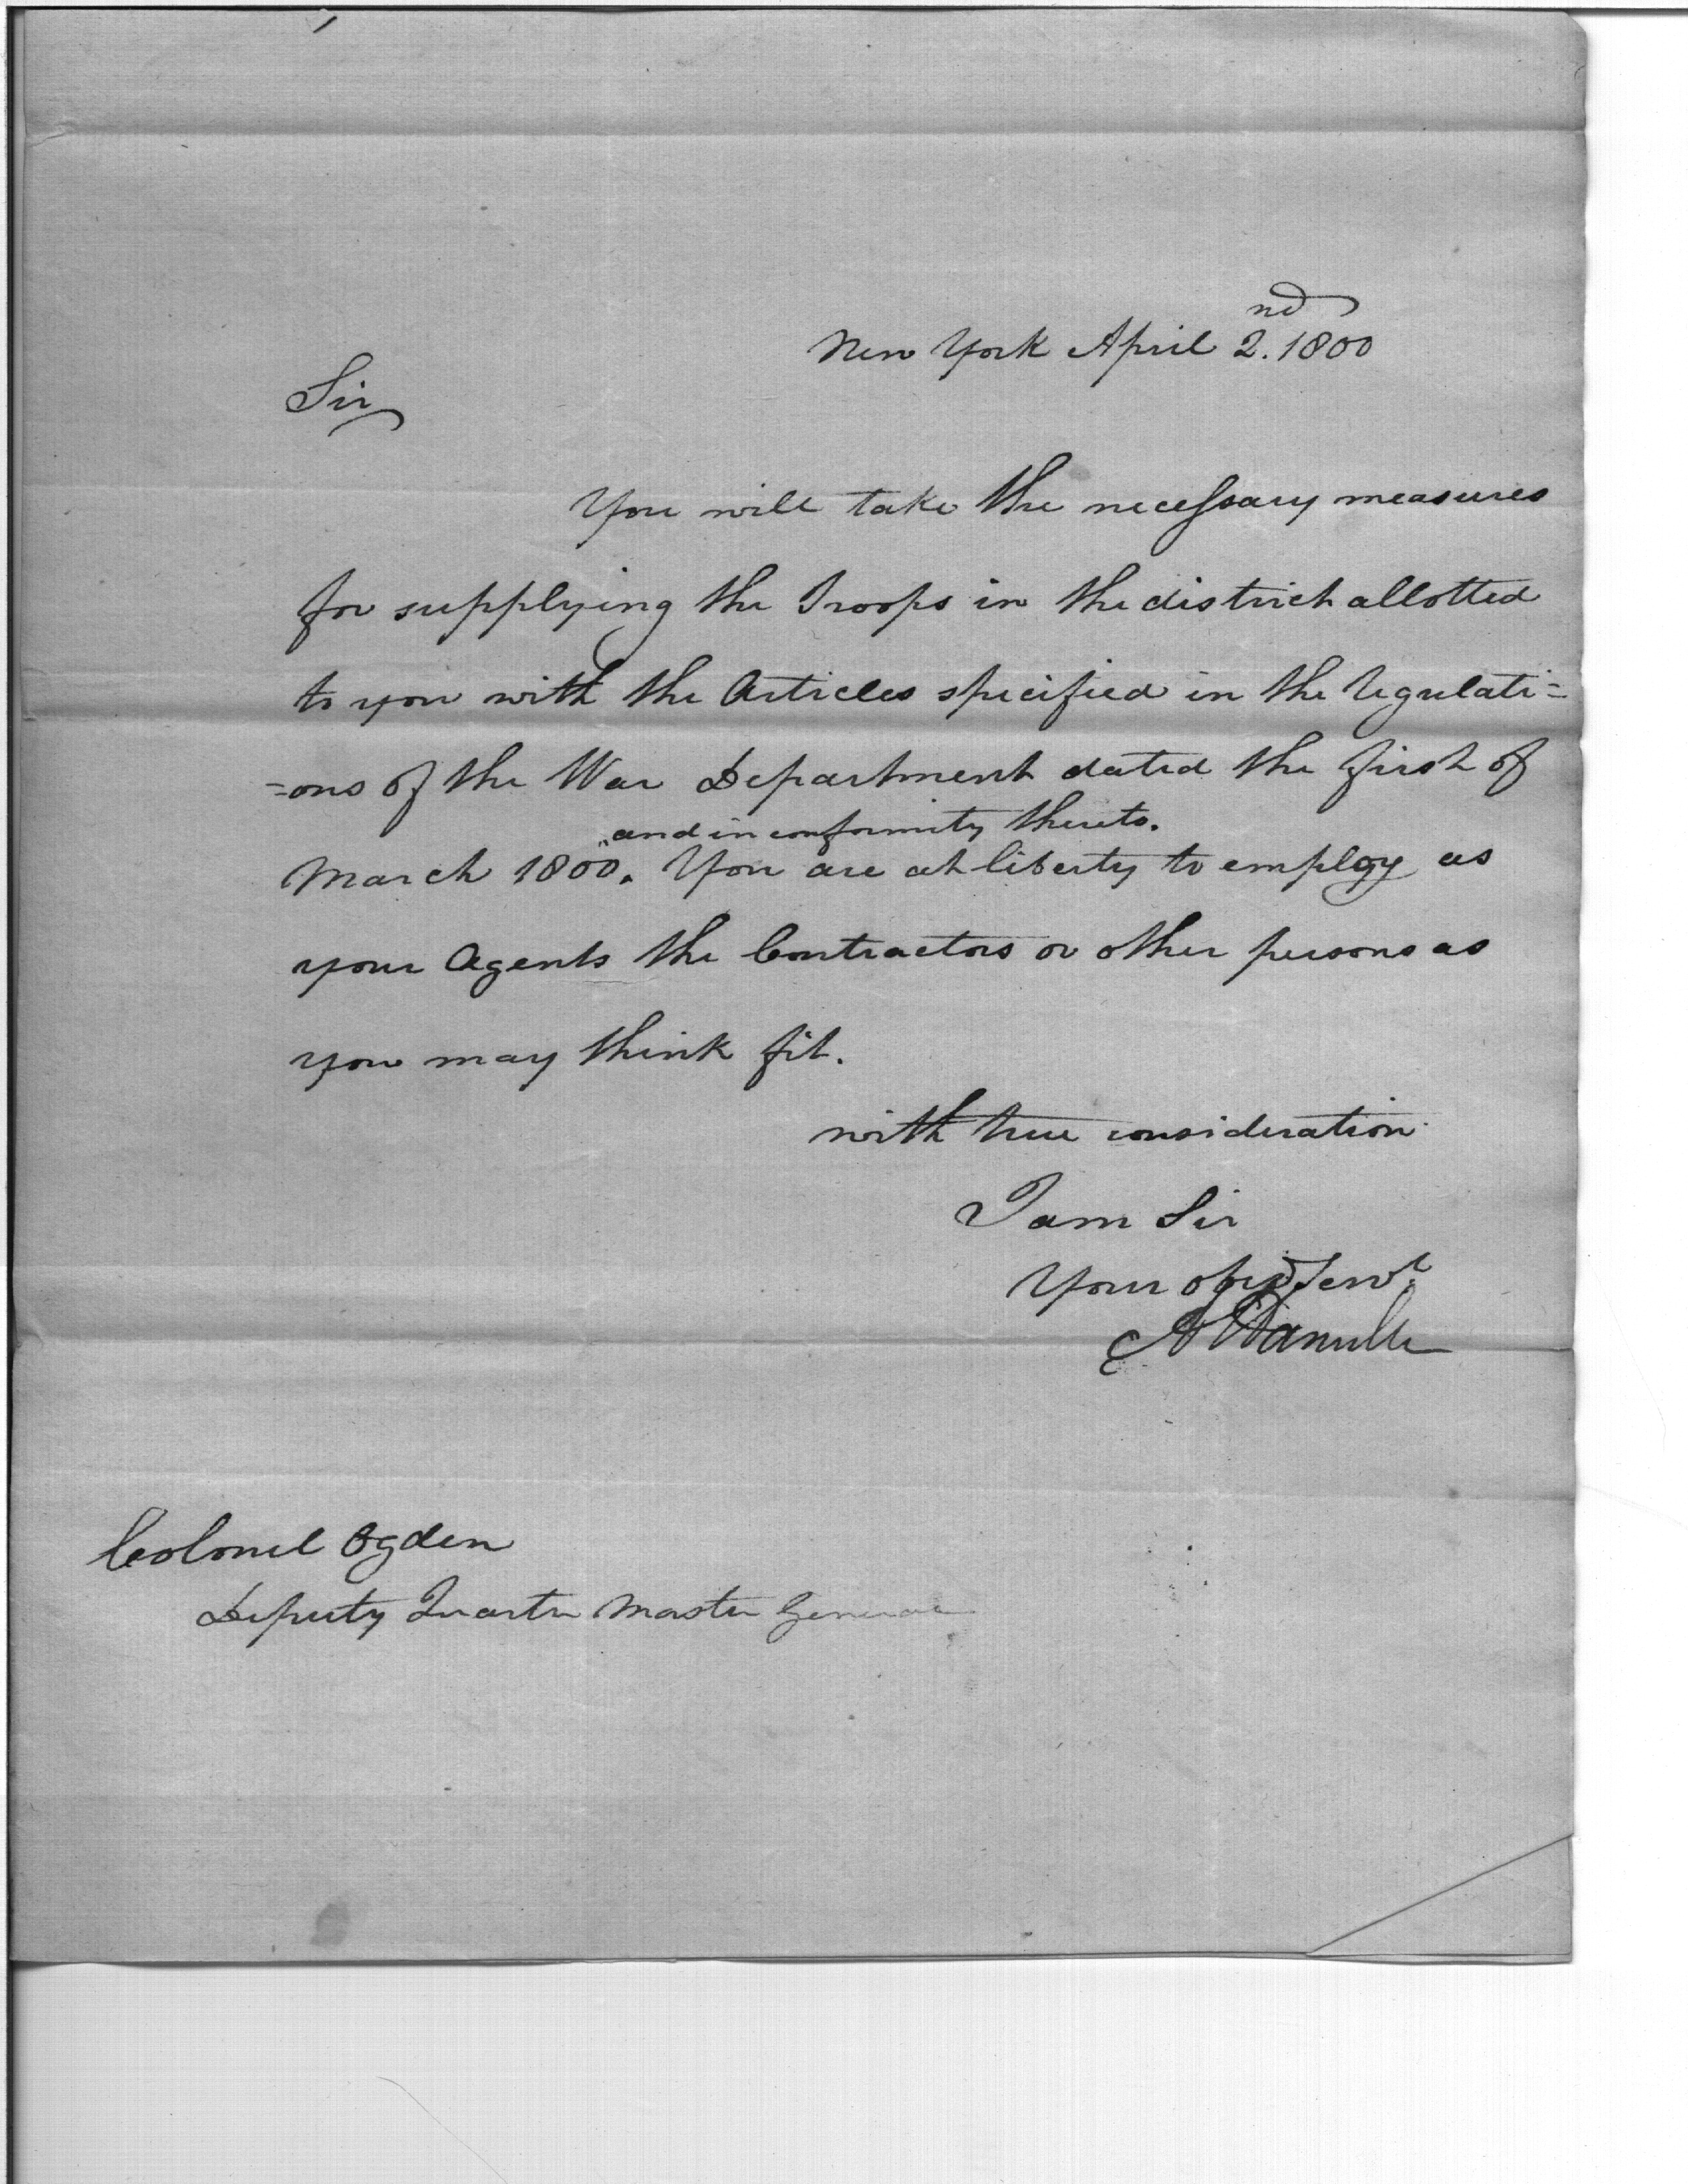 New York April 2nd. 1800
Sir
You will take the necessary measures
for supplying the Troops in the district allotted
to you with the Articles specified in the regulati=
=ons of the War Department dated the first of
and in conformity thereto.
March 1800. You are at liberty to employ as
your Agents the Contractors or other persons as
you may think fit.
with true consideration
I am Sir
Your obed Servt.
A Hamilton
Colonel Ogden
Deputy Quarter Master General